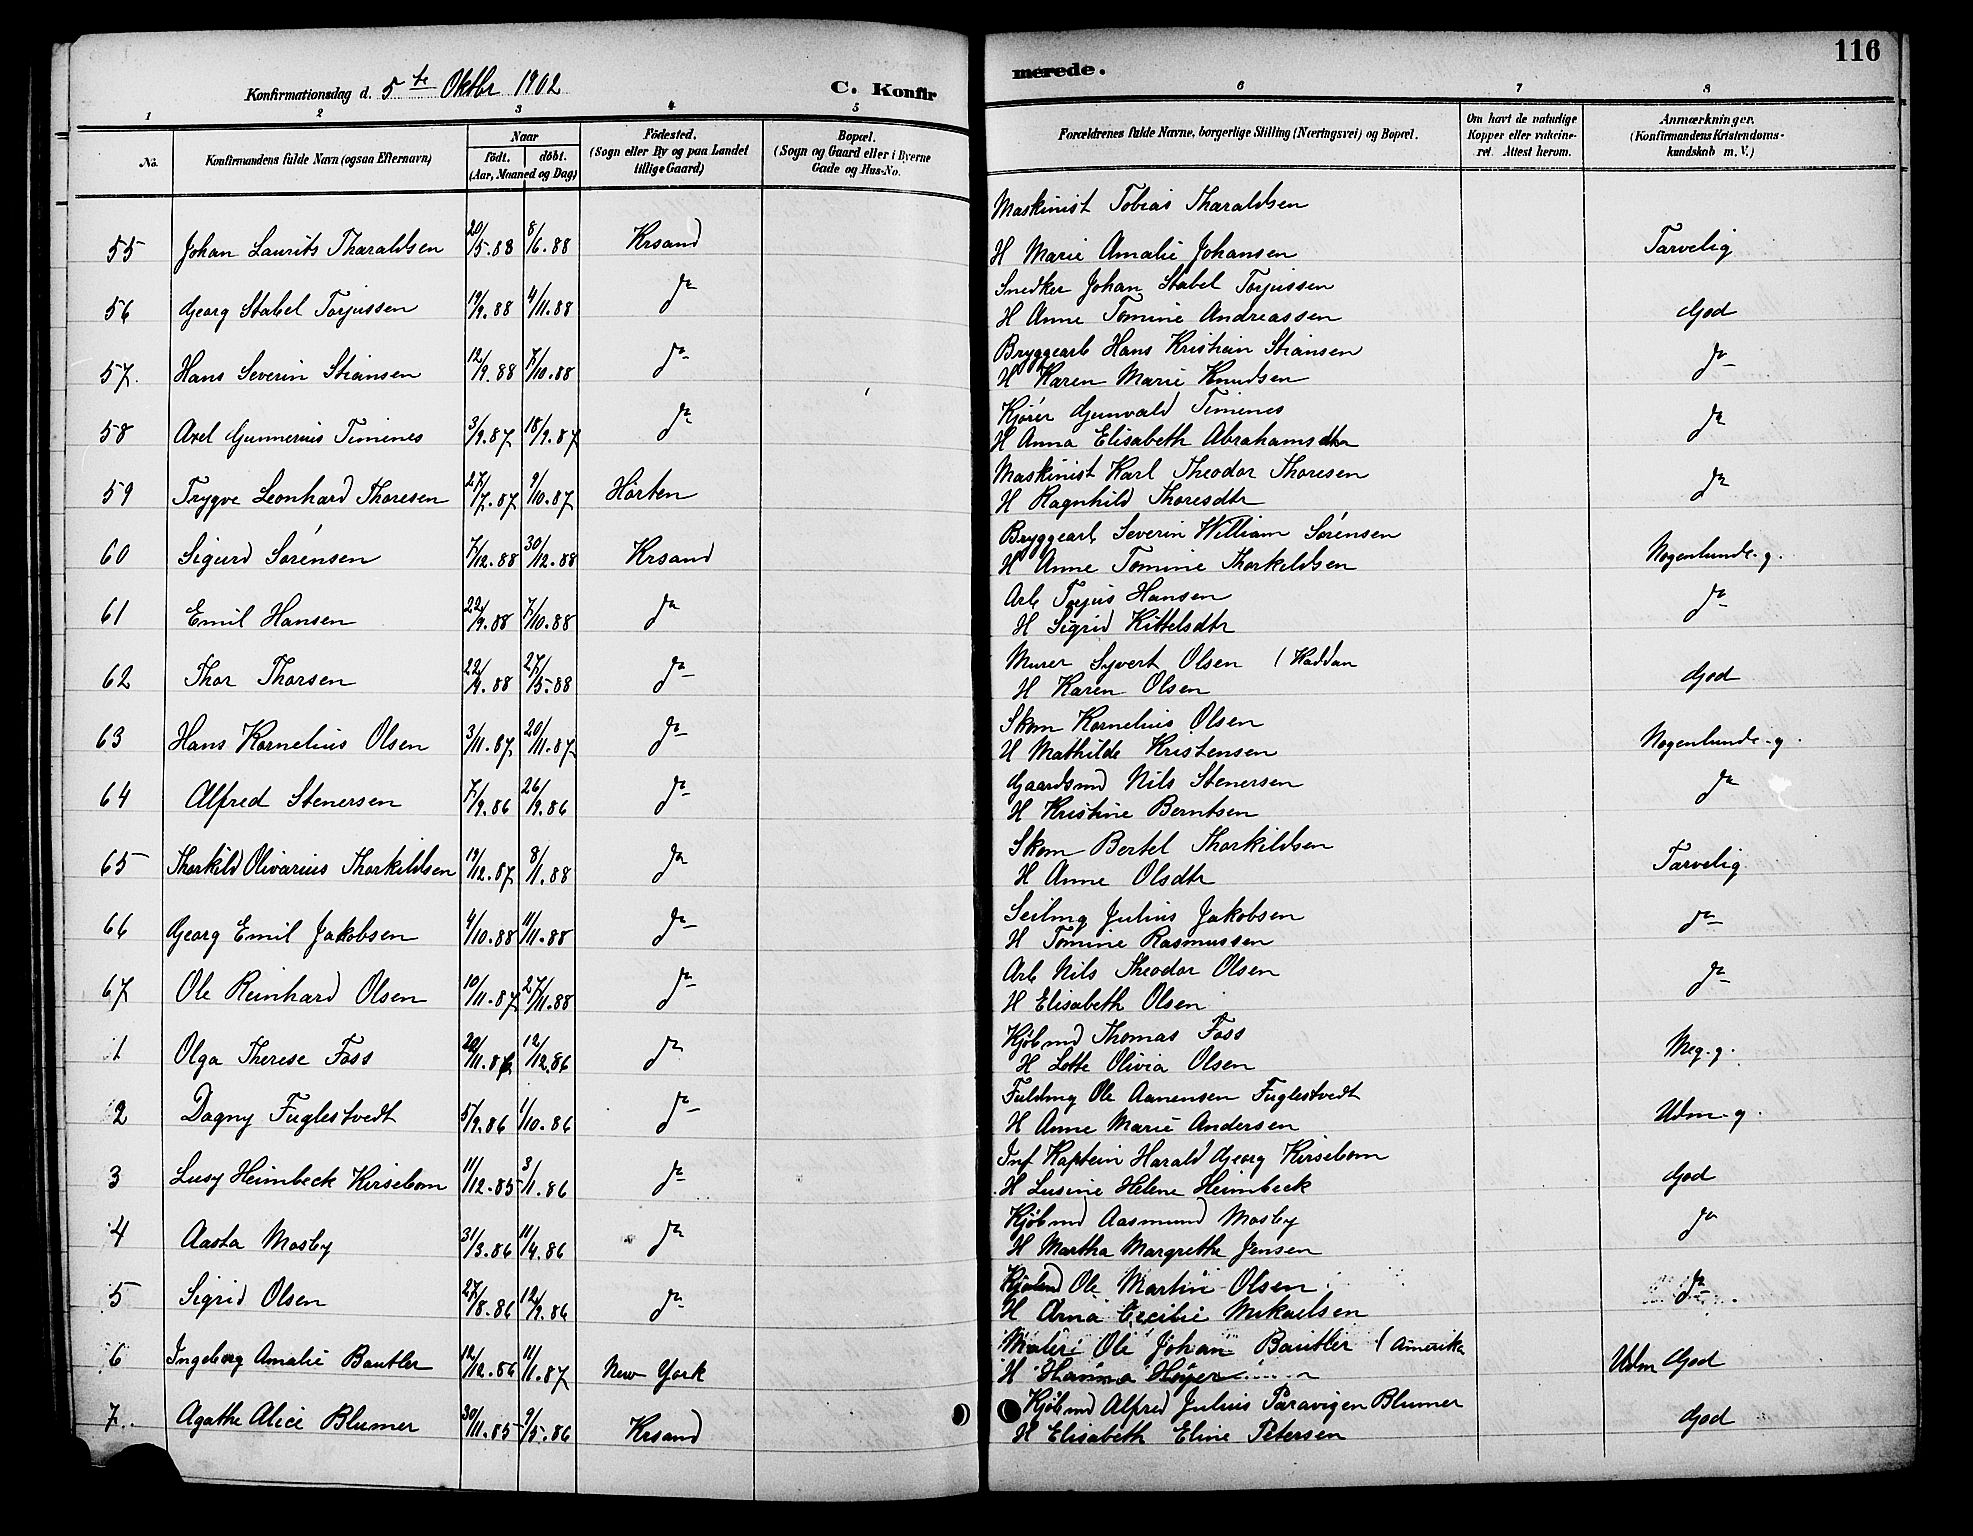 116
Konfirmationsdag d. 5te Oktbr 1902
C. Konfirmerede.
1 2 3 4 5 6 7 8
No. Konfirmandens fulde Navn (ogsaa Efternavn) Naar født. døbt. (Aar, Maaned og Dag) Fødested. (Sogn eller By og paa Landet tillige Gaard) Bopæl. (Sogn og Gaard eller i Byerne Gade og Hus-No. Forældrenes fulde Navne, borgerlige Stilling (Næringsvei) og Bopæl. Om havt de naturlige Kopper eller vakcineret. Attest herom. Anmærkninger. (Konfirmandens Kristendomskundskab m. V.)
Maskinist Tobias Tharaldsen
55 Johan Laurits Tharaldsen 20/5.88 8/6.88 Krsand H Marie Amalie Johansen Tarvelig
Snedker Johan Stabel Torjussen
56 Georg Stabel Torjussen 19/9.88 4/11.88 do H Anne Tomine Andreassen God
Bryggearb Hans Kristian Stiansen
57. Hans Severin Stiansen 12/9.88 7/10.88 do H Karen Marie Knudsen do
Kjører Gunvald Timenes
58 Axel Gunnerius Timenes 3/9.87 18/9.87 do H Anna Elisabeth Abrahamsdtr do
Maskinist Karl Theodor Thoresen
59 Trygve Leonhard Thoresen 27/7.87 9/10.87 Horten H Ragnhild Thoresdtr do
Bryggearb Severin William Sørensen
60 Sigurd Sørensen 7/12.88 30/12.88 Krsand H Anne Tomine Thorkildsen Nogenlunde.g.
Arb Torjus Hansen
61 Emil Hansen 22/9.88 7/10.88 do H Sigrid Kittelsdtr do
Murer Syvert Olsen (Haddan
62 Thor Thorsen 22/4.88 27/5.88 do H Karen Olsen God
Skom Kornelius Olsen
63 Hans Kornelius Olsen 3/11.87 20/11.87 do H Mathilde Kristensen Nogenlunde.g.
Gaardsmd Nils Stenersen
64 Alfred Stenersen 7/9.86 26/9.86 do H Kristine Berntsen do
Skom Bertel Thorkildsen
65 Thorkild Olivarius Thorkildsen 19/12.87 8/1.88 do H Anne Olsdtr Tarvelig
Seilmg Julius Jakobsen
66 Georg Emil Jakobsen 4/10.88 11/11.88 do H Tomine Rasmussen do
Arb Nils Theodor Olsen
67 Ole Reinhard Olsen 10/11.87 27/11.88 do H Elisabeth Olsen do
Kjøbmd Thomas Foss
1 Olga Therese Foss 20/11.86 12/12.86 do H Lotte Olivia Olsen Meg.g.
Fuldmg Ole Aanensen Fuglestvedt
2 Dagny Fuglestvedt 5/9.86 1/10.86 do H Anne Marie Andersen Udm.g.
Inf Kaptein Harald Georg Kirsebom
3 Lusy Heimbeck Kirsebom 11/12.85 3/1.86 do H Lusine Helene Heimbeck God
Kjøbmd Aasmund Mosby
4 Aasta Mosby 31/3.86 11/4.86 do H Martha Margrethe Jensen do
Kjøbmd Ole Martin Olsen
5 Sigrid Olsen 27/8.86 12/9.86 do H Anna Cecilie Mikaelsen do
Maler Ole Johan Bautler (Amerika
6 Ingeborg Amalie Bautler 12/12.86 11/1.87 New York H Hanna Høyer Udm God
Kjøbmd Alfred Julius Paravigen Blumer
7. Agathe Alice Blumer 30/11.85 9/5.86 Krsand H Elisabeth Eline Petersen God